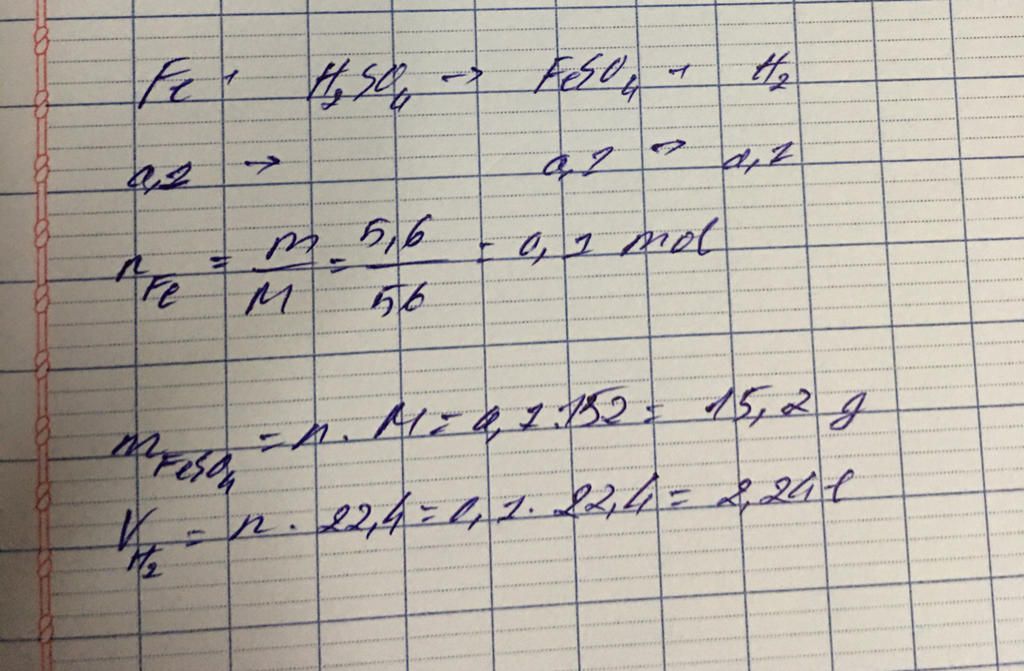 Fe + H₂SO₄ → FeSO₄ + H₂
0,1 → 0,1 → 0,1
n_Fe = m/M = 5,6/56 = 0,1 mol
m_FeSO₄ = n . M = 0,1.152 = 15,2 g
V_H₂ = n . 22,4 = 0,1. 22,4 = 2,24 l